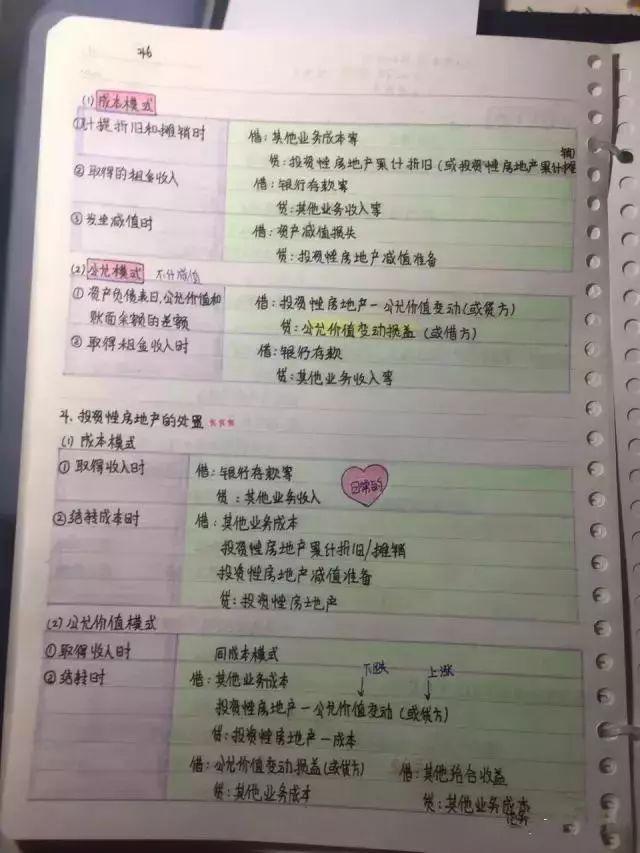 246
(1) 成本模式
①计提折旧和摊销时
借:其他业务成本等
贷:投资性房地产累计折旧(或投资性房地产累计摊销)
②取得的租金收入
借:银行存款等
贷:其他业务收入等
③发生减值时
借:资产减值损失
贷:投资性房地产减值准备
(2) 公允模式 不计减值
①资产负债表日,公允价值和账面余额的差额
借:投资性房地产—公允价值变动(或贷方)
贷:公允价值变动损益(或借方)
②取得租金收入时
借:银行存款
贷:其他业务收入等
4、投资性房地产的处置 ***
(1) 成本模式
①取得收入时
借:银行存款等
贷:其他业务收入
日常的
②结转成本时
借:其他业务成本
投资性房地产累计折旧/摊销
投资性房地产减值准备
贷:投资性房地产
(2) 公允价值模式
①取得收入时
同成本模式
②结转时
下跌 上涨
借:其他业务成本
投资性房地产—公允价值变动(或贷方)
贷:投资性房地产—成本
借:公允价值变动损益(或贷方) 借:其他综合收益
贷:其他业务成本 贷:其他业务成本